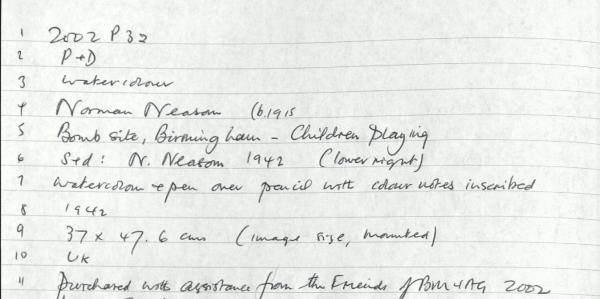 1 2002 P 32
2 P+D
3 watercolour
4 Norman Neasom (b.1915
5 Bomb site, Birmingham - Children playing
6 S+d: N. Neasom 1942 (lower right)
7 watercolour + pen over pencil with colour notes inscribed
8 1942
9 37 x 47.6 cms (image size, mounted)
10 UK
11 purchased with assistance from the Friends of BM+AG 2002